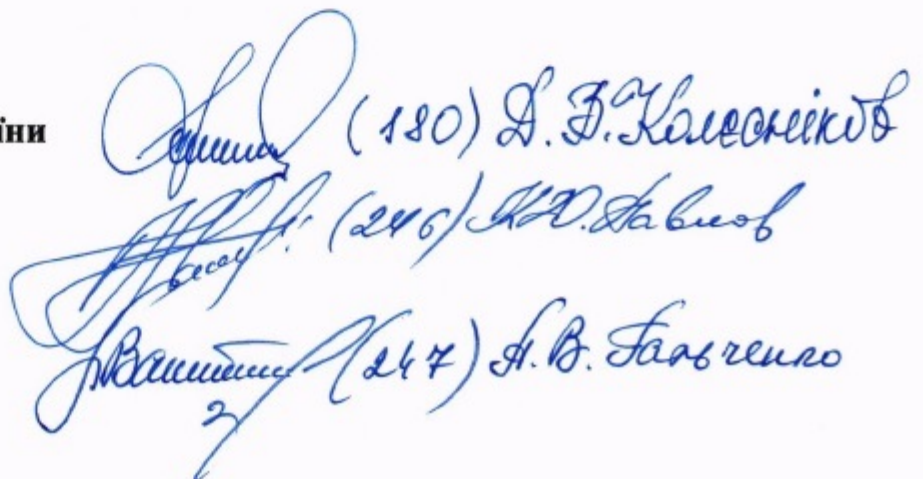 їни (180) Д. В. Колєсніков
(246) К.Ю. Павлов
(247) Н. В. Гальченко